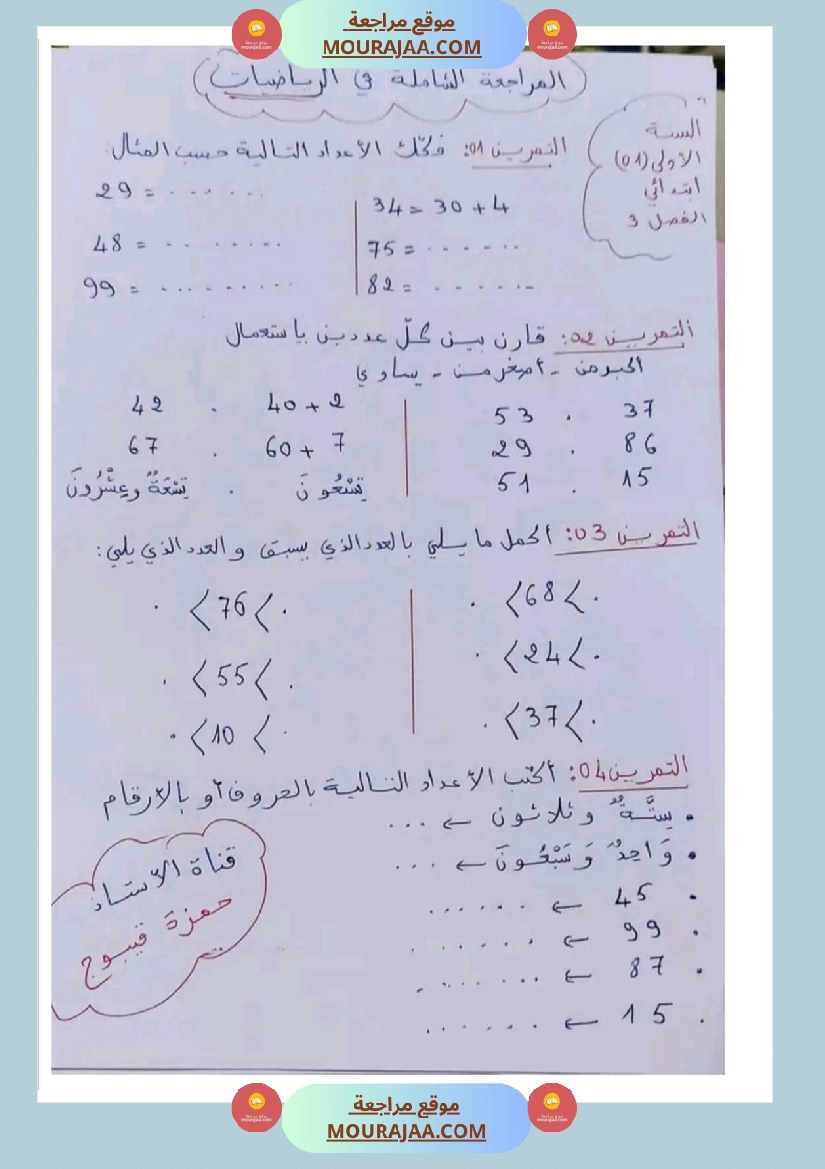 موقع مراجعة
MOURAJAA.COM
المراجعة الشاملة في الرياضيات
السنة
الأولى (01)
ابتدائي
الفصل 3
التمرين 01: فكّك الأعداد التالية حسب المثال.
34 = 30 + 4
75 = . . . . . .
82 = . . . . . .
29 = . . . . . .
48 = . . . . . . .
99 = . . . . . . . . .
التمرين 02: قارن بين كلّ عددين باستعمال
أكبر من - أصغر من - يساوي
37 . 53
86 . 29
15 . 51
40 + 2 . 42
60 + 7 . 67
تِسْعُونَ . تِسْعَةٌ وعِشْرُونَ
التمرين 03: أكمل ما يلي بالعدد الذي يسبق والعدد الذي يلي:
. 〈 68 〈 .
. 〈 24 〈 .
. 〈 37 〈 .
. 〈 76 〈 .
. 〈 55 〈 .
. 〈 10 〈 .
التمرين 04: أكتب الأعداد التالية بالحروف أو بالأرقام
• سِتَّةٌ وثلاثون ← . . .
• وَاحِدٌ وَسَبْعُونَ ← . . .
. 45 ← . . . . . .
. 99 ← . . . . . . .
. 87 ← . . . . . . .
. 15 ← . . . . . .
قناة الأستاذ
حمزة قيبوج
موقع مراجعة
MOURAJAA.COM